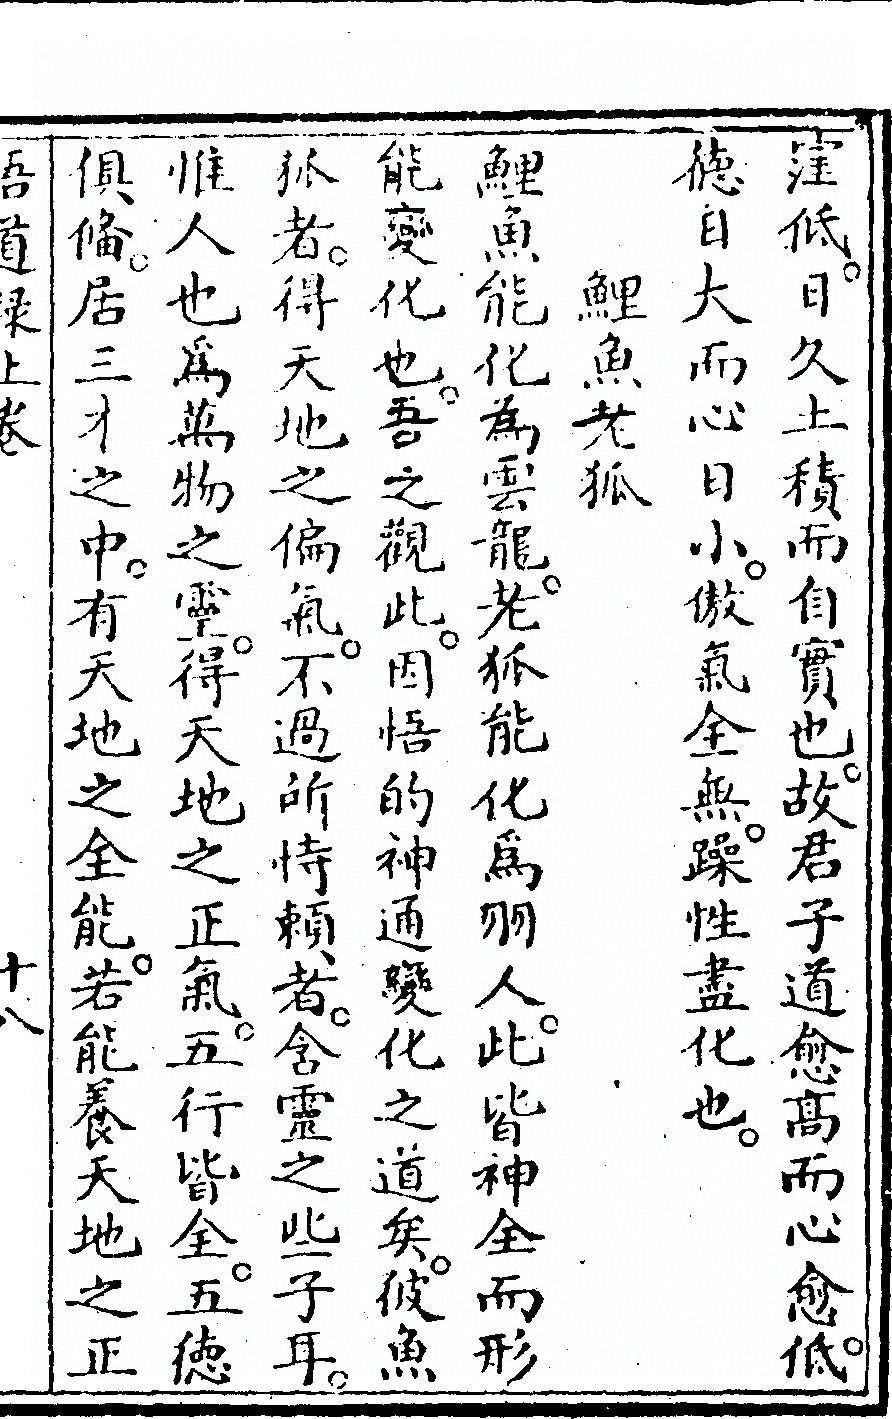 窪低。日久土積而自實也。故君子道愈高而心愈低。
德自大而心日小。傲氣全無。躁性盡化也。
鯉魚老狐
鯉魚能化為雲龍。老狐能化爲羽人。此皆神全而形
能變化也。吾之觀此。因悟的神通變化之道矣。彼魚
狐者。得天地之偏氣。不過所恃賴者。含靈之些子耳。
惟人也爲萬物之靈。得天地之正氣。五行皆全。五德
俱備。居三才之中。有天地之全能。若能養天地之正
悟道錄上卷　十八